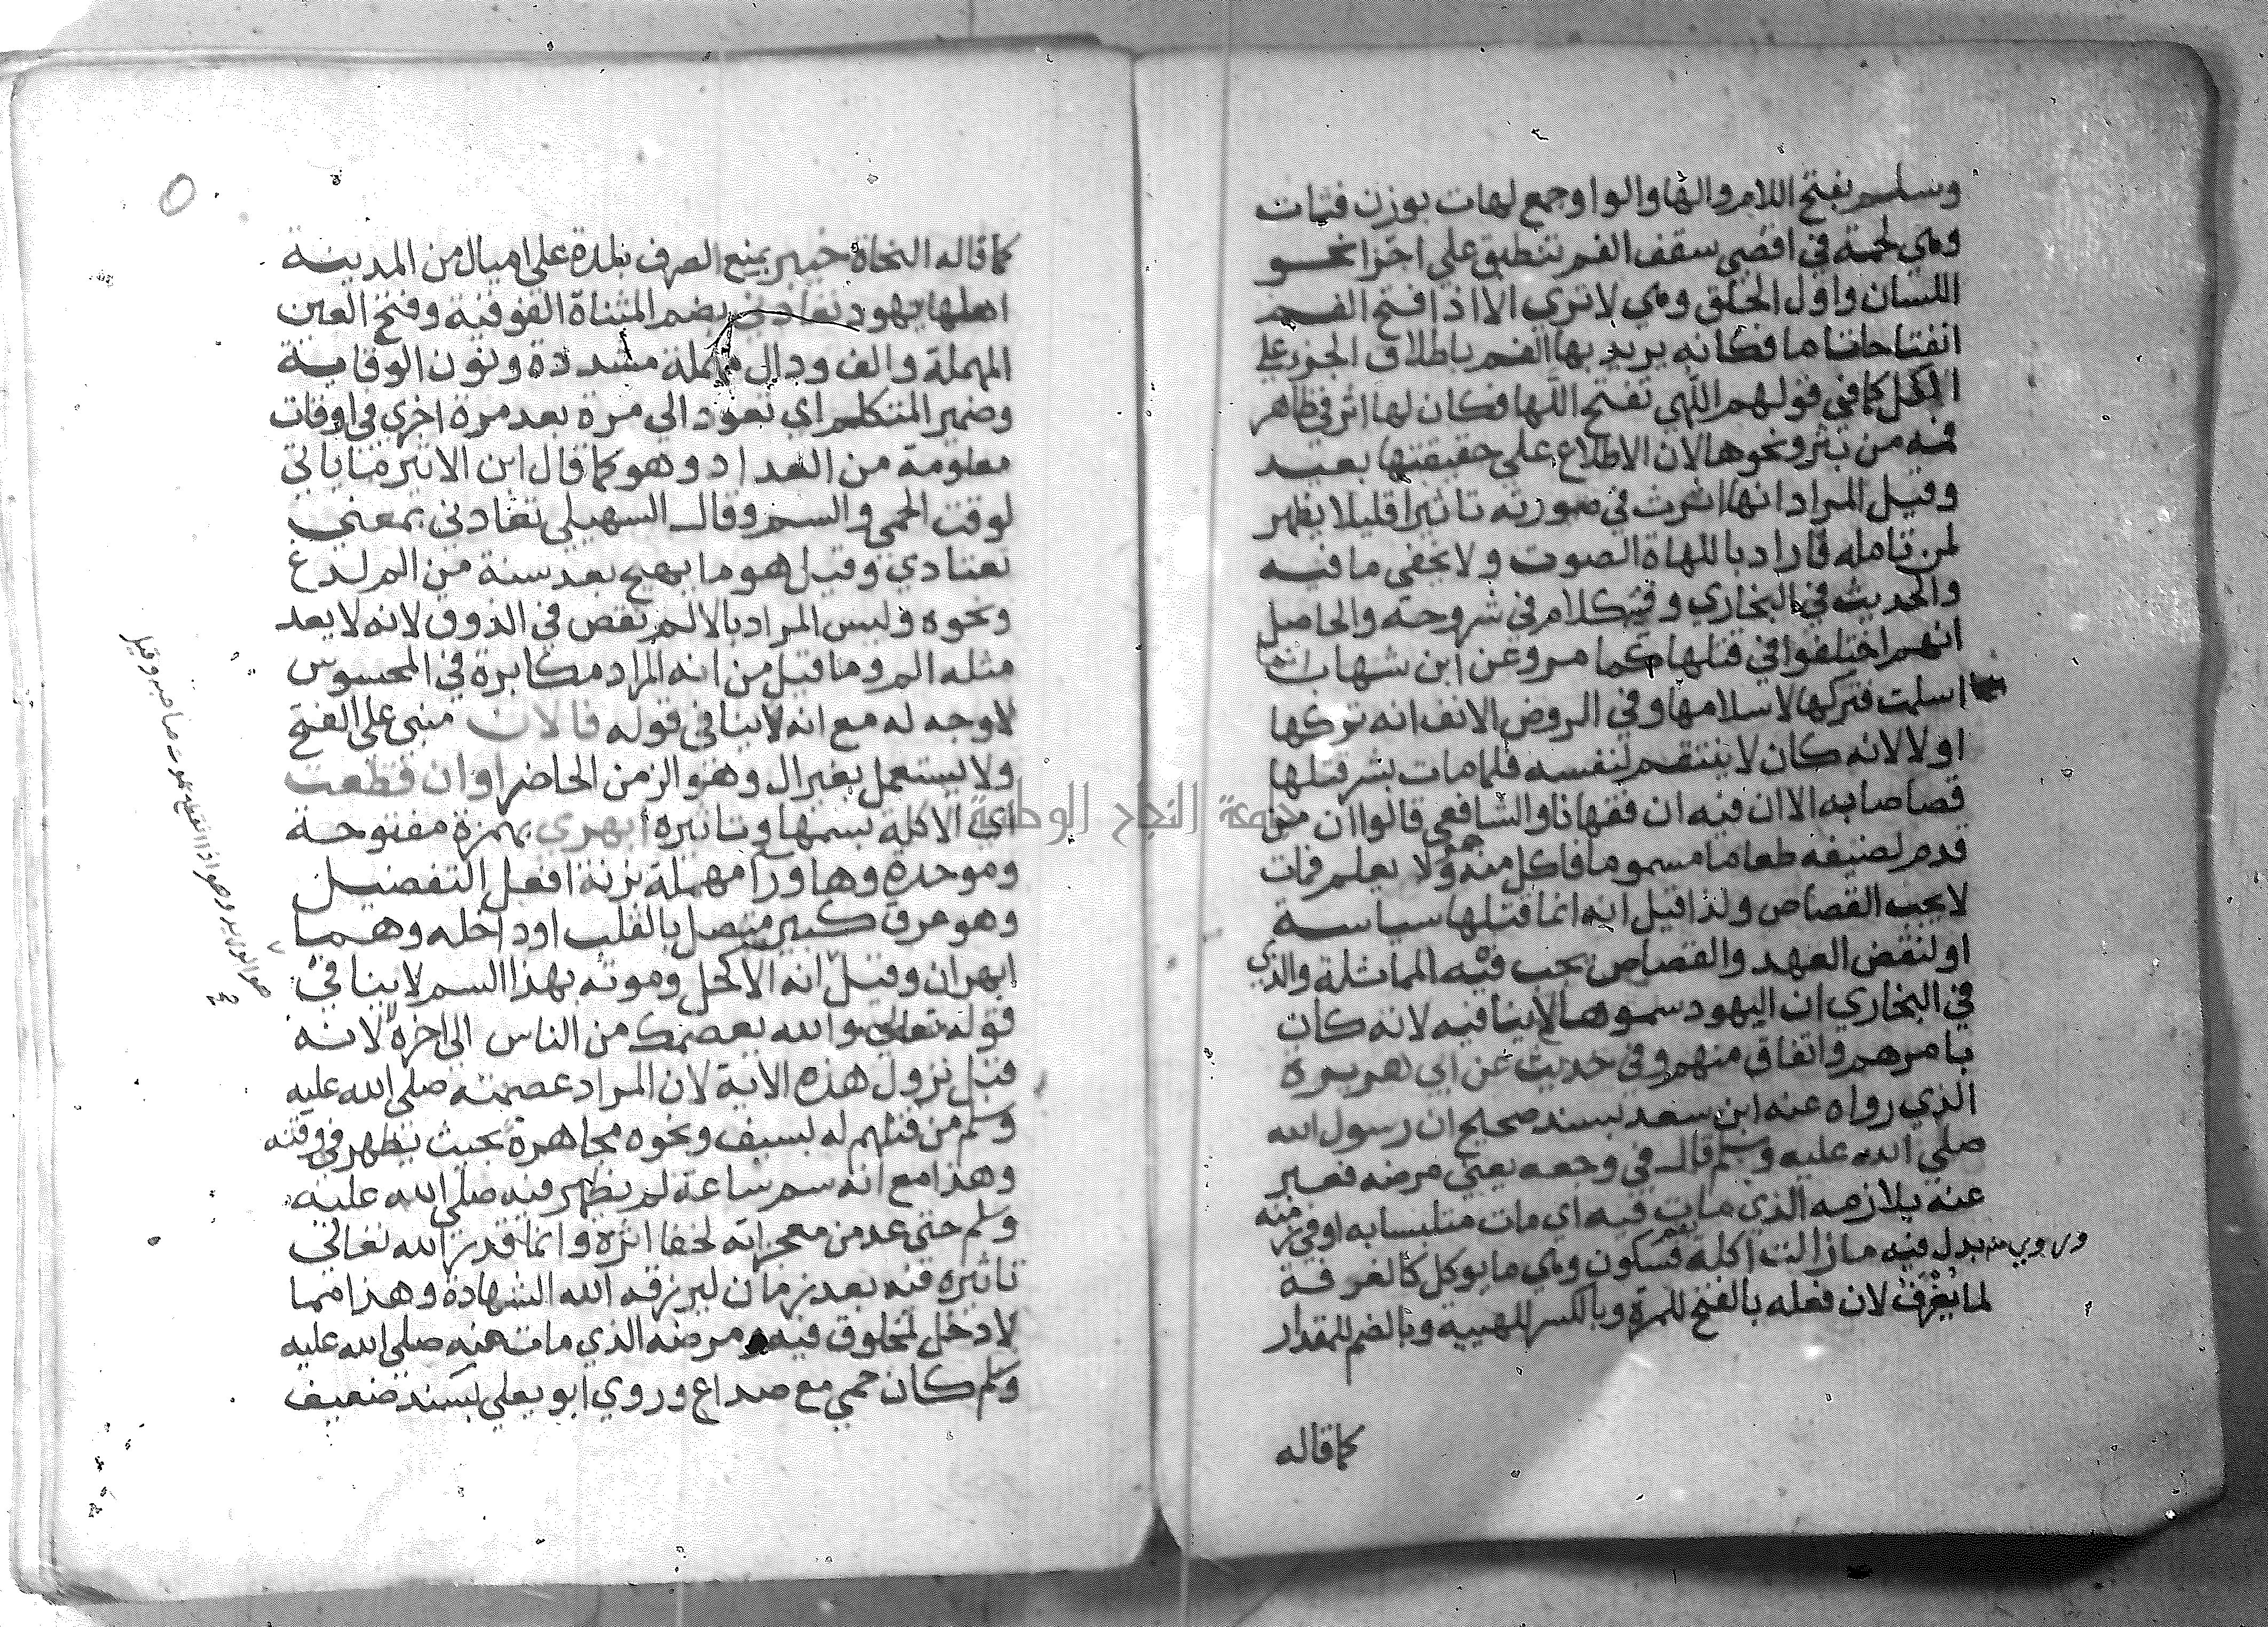 وسلم بفتح اللام والها والواو جمع لهات بوزن فتات
وهي لحمة في اقصي سقف الفم تنطبق علي اجزا نحو
اللسان واول الحلق وهي لا تري الا اذا فتح الفم
انفتاحا تاما فكانه يريد بها الفم باطلاق الجزء علي
الكل كما في قولهم اللهي تفتح اللها فكان لها اثر في ظاهر
فمه من بثر ونحوها لان الاطلاع علي حقيقتها بعيد
وقيل المراد انها اثرت في صورته تاثيرا قليلا يظهر
لمن تامله فاراد باللهاة الصوت ولا يخفي ما فيه
والحديث في البخاري وفيه كلام في شروحه والحاصل
انهم اختلفوا في قتلها كما مر وعن ابن شهاب انها
اسلمت فتركها لاسلامها وفي الروض الانف انه تركها
اولا لانه كان لا ينتقم لنفسه فلما مات بشر قتلها
قصاصا به الا ان فيه ان فقهانا والشافعي قالوا ان من
قدم لضيفه طعاما مسموما فاكل منه ولا يعلم فمات
لا يجب القصاص ولذا قيل انه انما قتلها سياسة
او لنقض العهد والقصاص يجب فيه المماثلة والذي
في البخاري ان اليهود سموها لا ينافيه لانه كان
بامرهم واتفاق منهم وفي حديث عن ابي هريرة
الذي رواه عنه ابن سعد بسند صحيح ان رسول الله
صلي الله عليه وسلم قال في وجعه يعني مرضه فعبر
عنه بلازمه الذي مات فيه اي مات متلبسا به او في زمنه
وروي منه بدل فيه ما زالت اكلة بضم فسكون وهي ما يوكل كالغرفة
لما يُغْرَفُ لان فعله بالفتح للمرة وبالكسر للهيية وبالضم للمقدار
كما قاله
كما قاله النحاة خيبر بمنع الصرف بلدة علي اميال من المدينة
اهلها يهود تعادني بضم المثناة الفوقية وفتح العين
المهملة والف ودال مهملة مشددة ونون الوقاية
وضمير المتكلم اي تعود الي مرة بعد مرة اخري في اوقات
معلومة من العداد وهو كما قال ابن الاثير ما ياتي
لوقت الحمي والسم وقال السهيلي تعادني بمعني
تعتادي وقيل هو ما يهيج بعد سنة من الم لدغ
ونحوه وليس المراد بالالم نقص في الذوق لانه لا يعد
مثله الم وما قيل من انه المراد مكابرة في المحسوس
لا وجه له مع انه لا ينافي قوله فالان مبني علي الفتح
ولا يستعمل بغير ال وهو الزمن الحاضر اوان قطعت
اي الاكلة بسمها وتاثيره ابهري بهمزة مفتوحة
وموحدة وها ورا مهملة بزنة افعل التفضيل
وهو عرق كبير متصل بالقلب او داخله وهما
ابهران وقيل انه الاكحل وموته بهذا السم لا ينافي
قوله تعالي والله يعصمك من الناس الي اخره لانه
قبل نزول هذه الاية لان المراد عصمته صلي الله عليه
وسلم من قتلهم له بسيف ونحوه مجاهرة بحيث يظهر في وقته
وهذا مع انه سم ساعة لم يظهر فيه صلي الله عليه
وسلم حتي عد من معجزاته لخفا اثره وانما قدر الله تعالي
تاثيره فيه بعد زمان ليرزقه الله الشهادة وهذا مما
لا دخل لمخلوق فيه ومرضه الذي مات منه صلي الله عليه
وسلم كان حمي مع صداع وروي ابو يعلي بسند ضعيف
وهو اذا انقطع يموت صاحبه وقيل
جامعة النجاح الوطنية